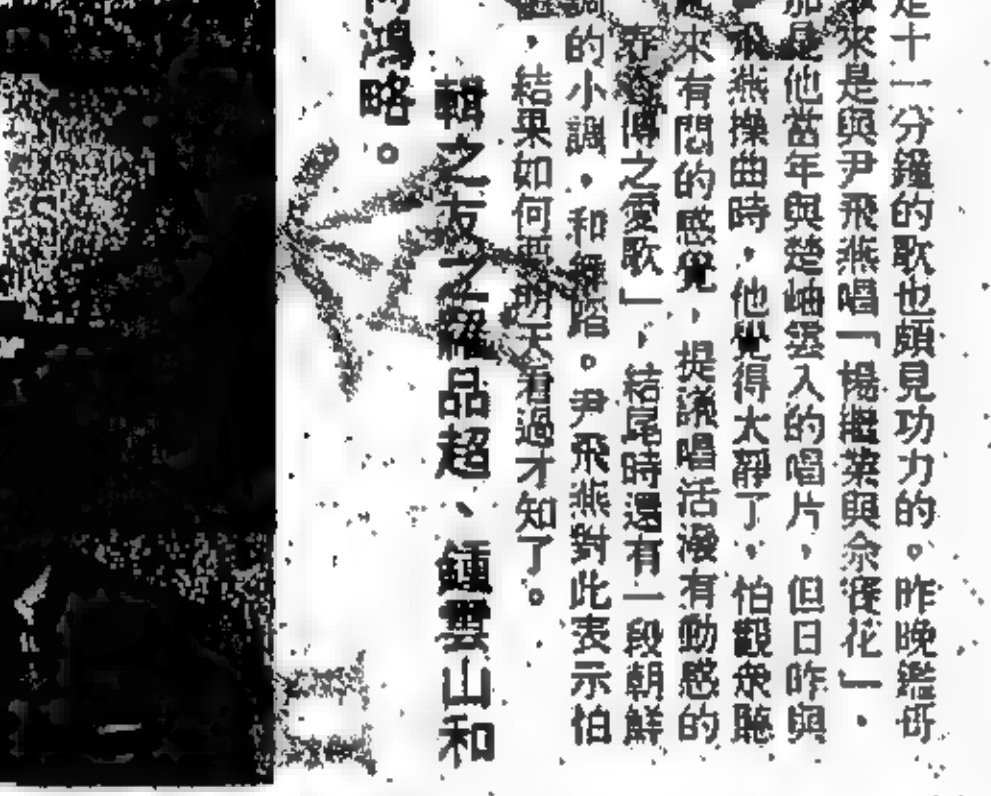 是十一分鐘的歌也頗見功力的。昨晚鑑哥
來是與尹飛燕唱「楊繼業與佘賽花」，
他當年與楚岫雲入的唱片，但日昨與
飛燕操曲時，他覺得太靜了，怕觀衆聽
來有悶的感覺，提議唱活潑有動感的
之愛歌」，結尾時還有一段朝鮮
的小調，和 。尹飛燕對此表示怕
，結果如何 明天看過才知了。
輯之友之羅品超、鍾雲山和
鴻略。